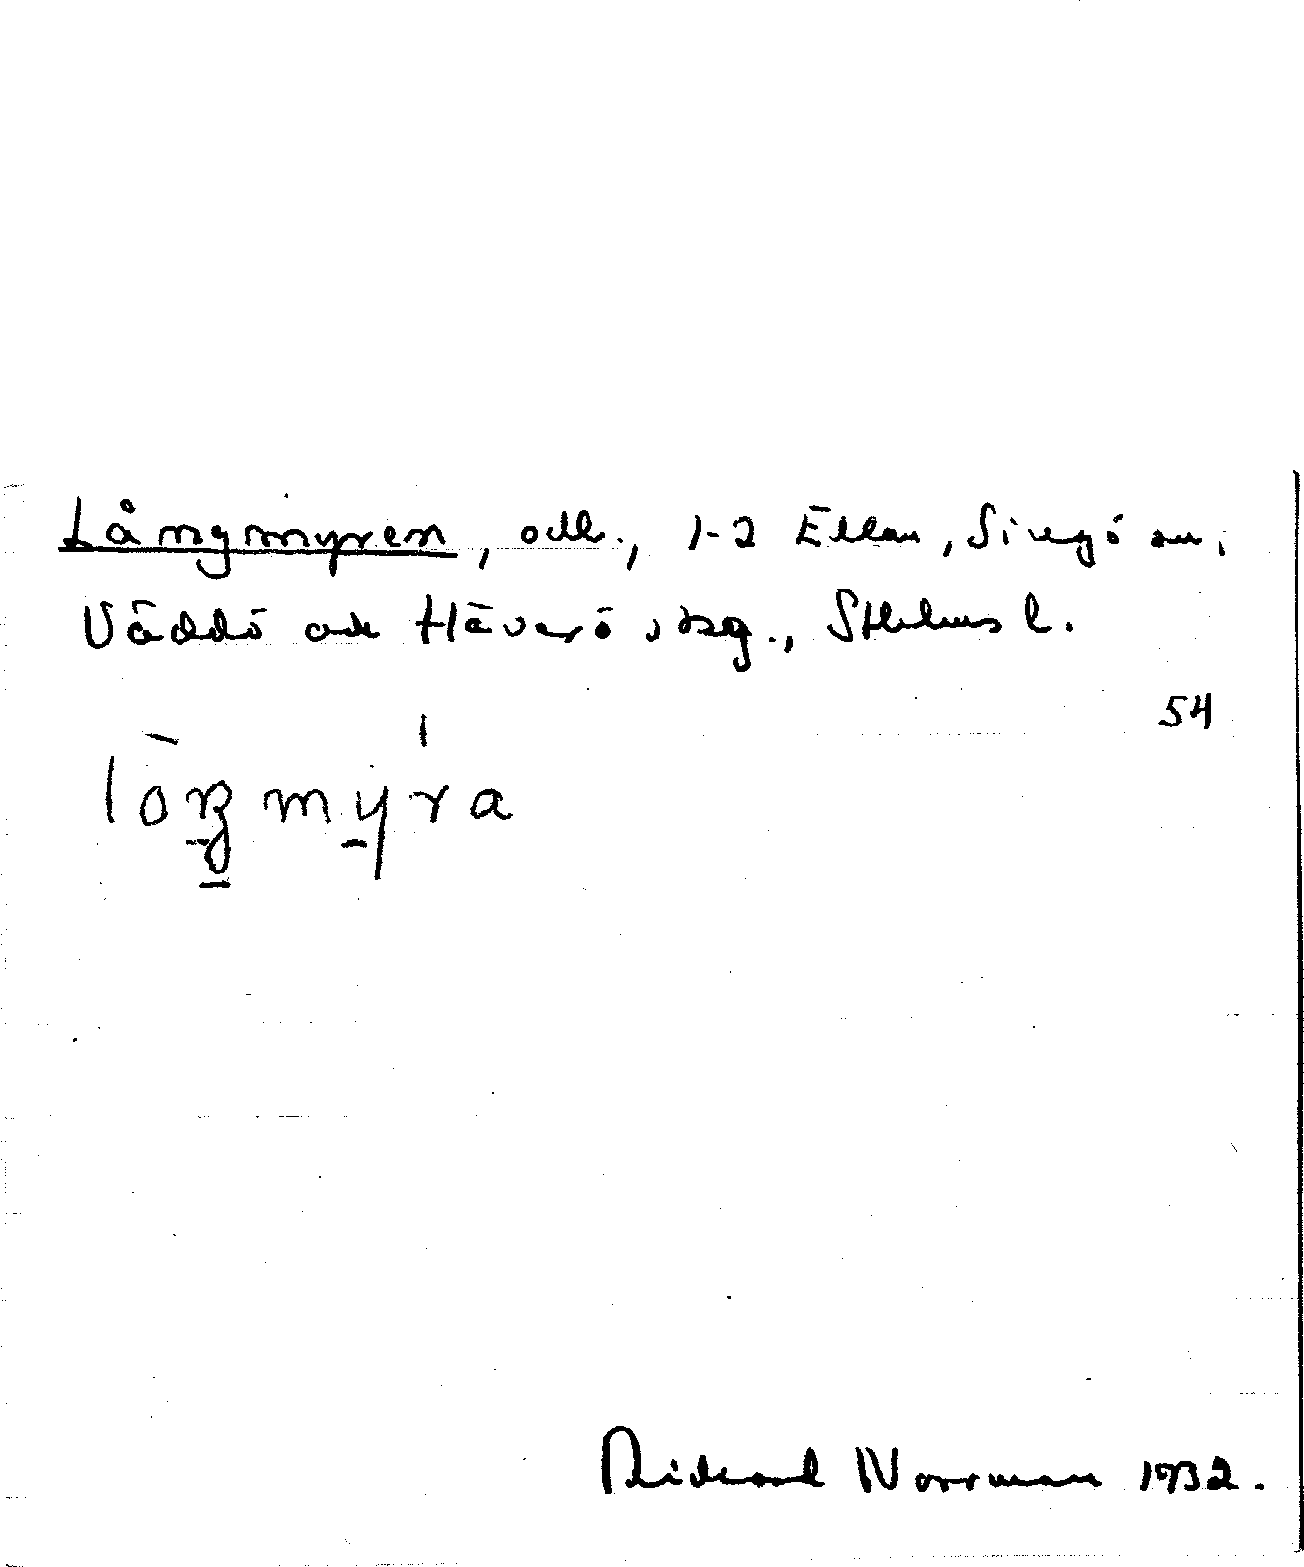 Långmyren, odl., 1-2 Ellan, Singö sn,
Väddö och Häverö skg., Sthlms l.
54
lòŋmy̠ra
Rickard Norrman 1932.